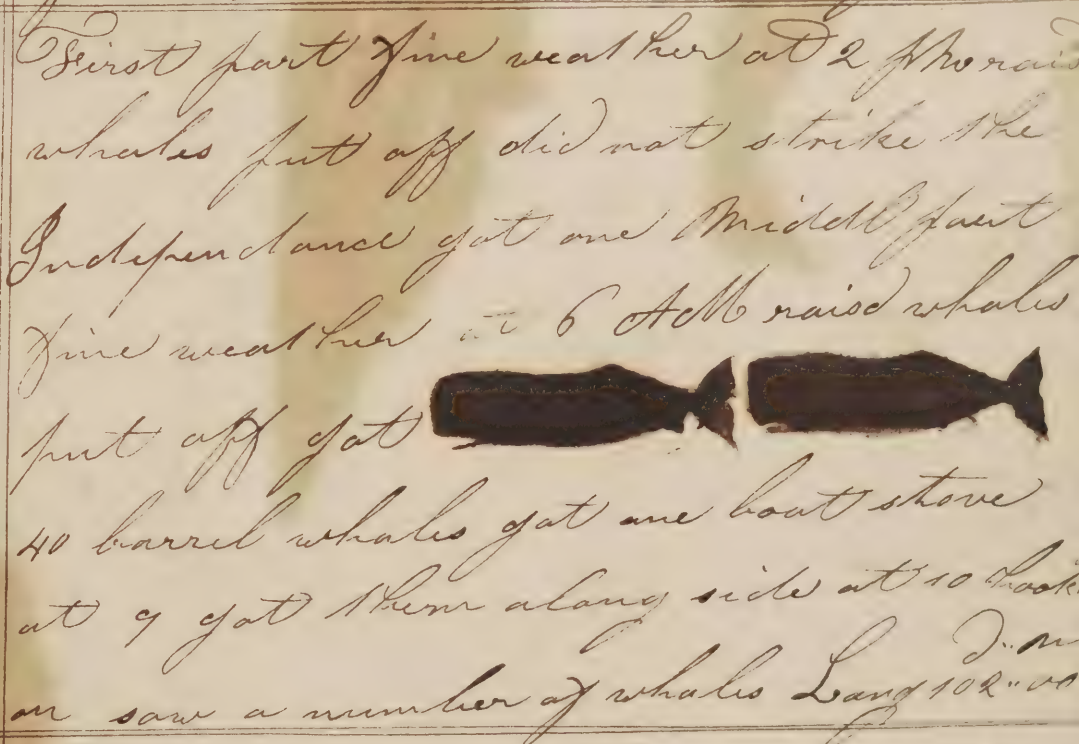 First part fine weather at 2 PM raisd
whales put off did not strike the
Independance got one Middl part
fine weather at 6 AM raisd whales
put off got
40 barrel whales got one boat stove
at 9 got them along side at 10 hook
D.. M
on saw a number of whales Long 102..00